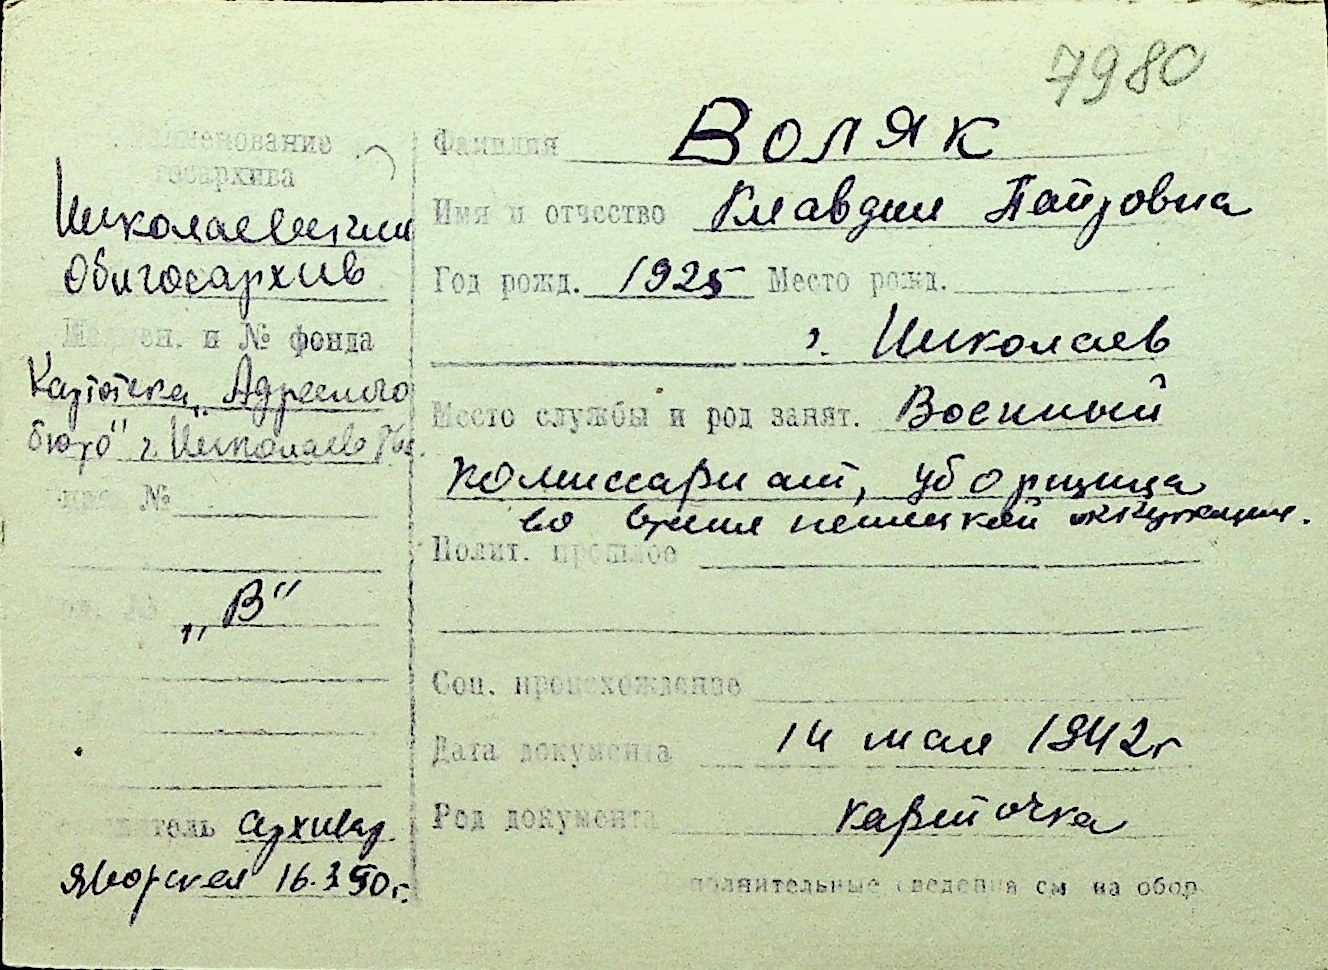 7980
Наименование
госархива
Николаевский
Облгосархив
Наимен. и № фонда
Картотека „Адресного
бюро" г. Николаев
инв. №
„В"
архивар.
Яворская 16.3 50г.
Фамилия Воляк
Имя и отчество Клавдия
Год рожд. 1925 Место рожд.
г. Николаев
Место службы и род занят. Военный
комиссариат, уборщица
во время немецкой оккупации.
Полит. прошлое
Соц. происхождение
Дата документа 14 мая 1942г
Род документа карточка
Дополнительные сведения см на обор.